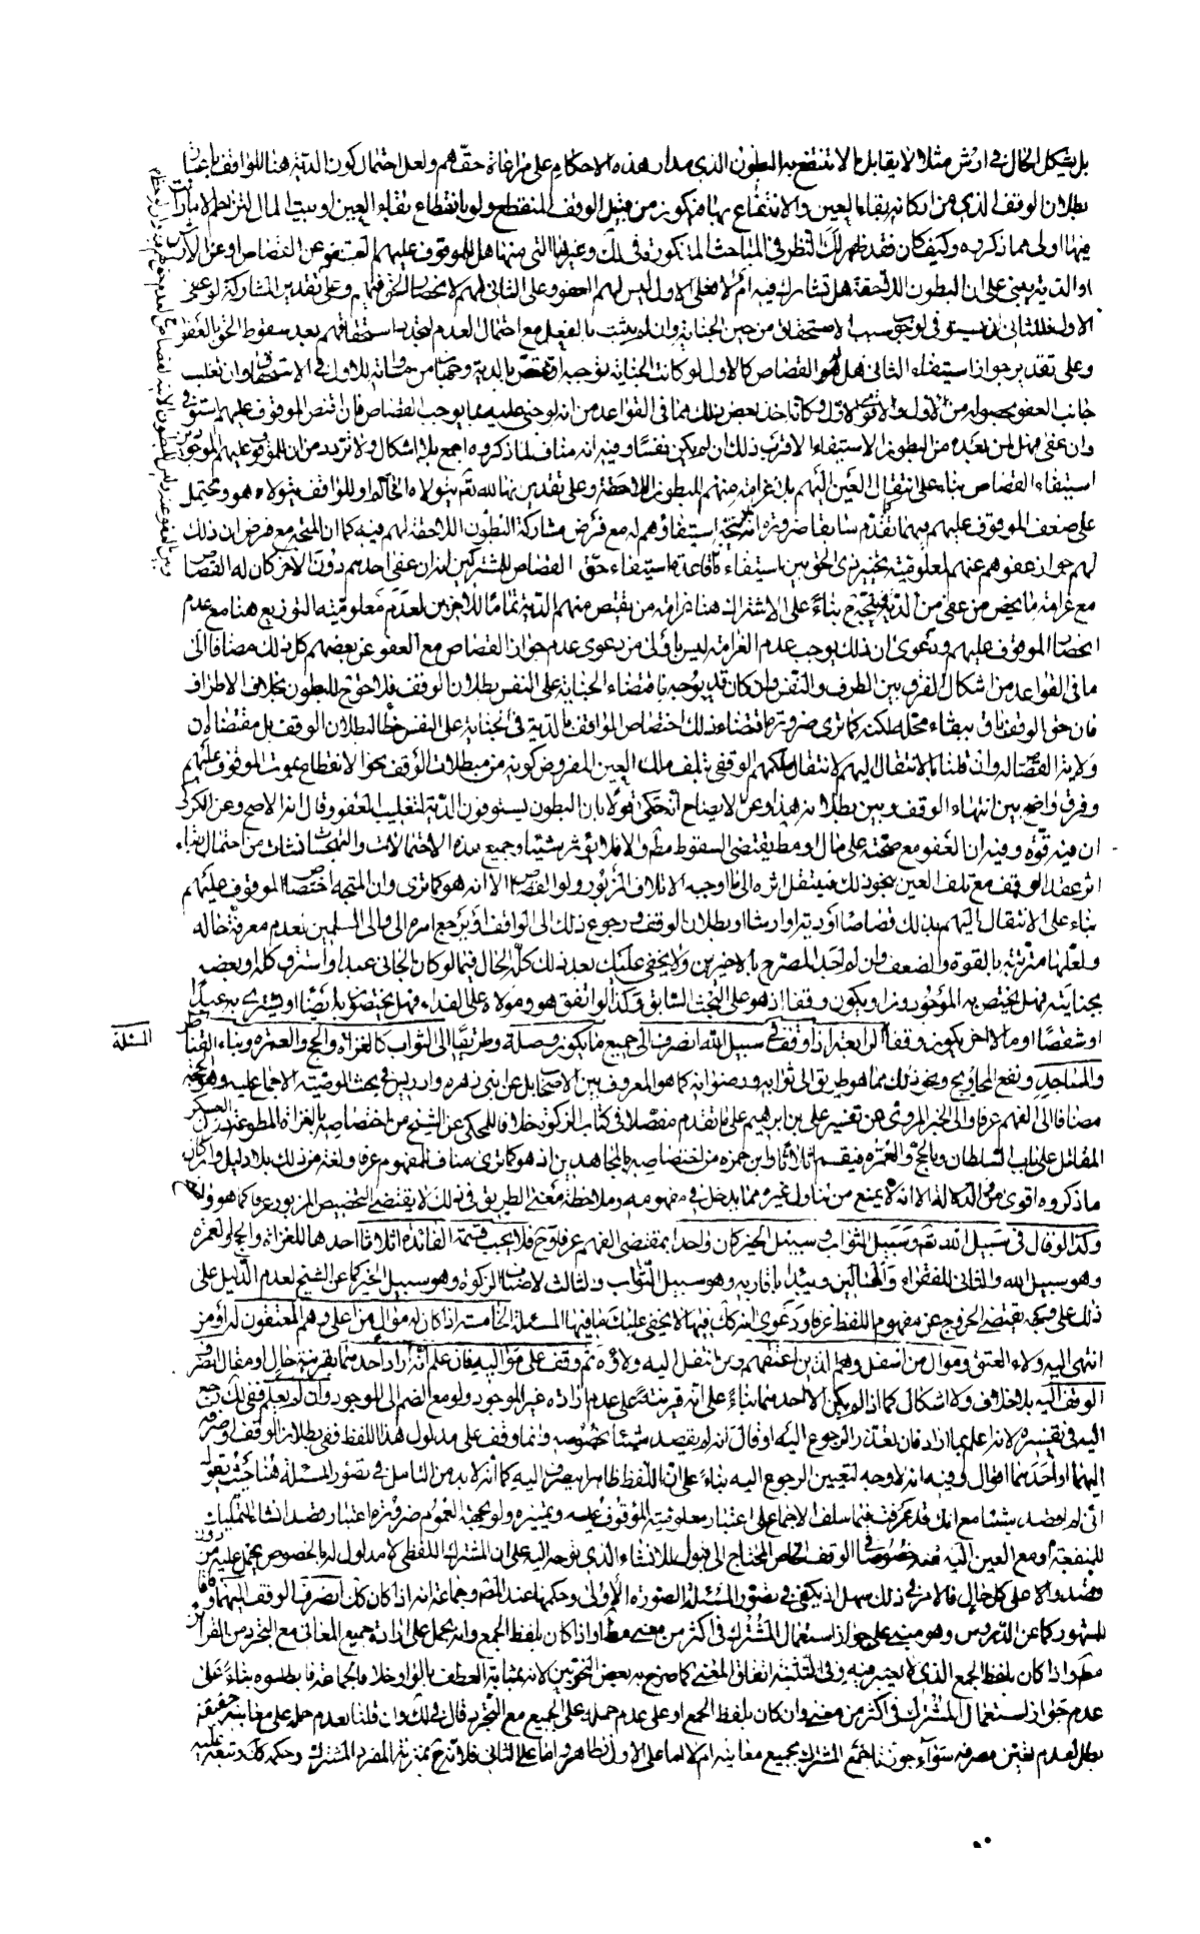 بل يشكل الحال في ارش مثلا لا يقابل ما لا تنتفع به البطون الذي مدار هذه الاحكام على مراعاة حقهم ولعل احتمال كون الدية هنا للواقف باعتبار
بطلان الوقف الذي من اركانه بقاء العين والانتفاع بها فيكون من قبيل الوقف المنقطع ولو بانقطاع بقاء العين او بيت المال
منها اولى مما ذكروه وكيف كان فقد ظهر لك النظر في المباحث المذكورة في لك وغيرها التي منها هل للموقوف عليهم العفو عن القصاص او عن الارش
او الدية يبنى على ان البطون اللاحقة هل تشارك فيه ام لا فعلى الاول ليس لهم العفو وعلى الثاني فلهم لانحصار الحق فيهم وعلى تقدير المشاركة لو عفى
الاول فللثاني ان يستوفى لوجود سبب الاستحقاق من حين الجناية وان لم يثبت بالفعل مع احتمال العدم لتجدد استحقاقهم بعد سقوط الحق بالعفو
وعلى تقدير جواز استيفاء الثاني هل له القصاص كالاول لو كانت الجناية توجبه او يختص بالدية وجهان من مساواته للاول في الاستحقاق وان تغلب
جانب العفو بحصوله من الاول والاقوى الاول وكانه اخذ بعض ذلك مما في القواعد من انه لو جنى عليه بما يوجب القصاص فان اقتص الموقوف عليهم استوفى
وان عفى فهل لمن بعده من البطون الاستيفاء الاقرب ذلك ان لم يكن نفسا وفيه انه مناف لما ذكروه اجمع بلا اشكال ولا تردد من ان للموقوف عليهم الموجودين
استيفاء القصاص بناء على انتقال العين اليهم بلا غرامة منهم للبطون اللاحقة وعلى تقدير بقائها لله تعم يتولاه الحاكم او للواقف يتولاه هو ويحتمل
على ضعف الموقوف عليهم فيهما تقدم سابقا ضرورة انه يتجه استيفاؤهم له مع فرض مشاركة البطون اللاحقة لهم فيه كما ان المتجه مع فرض ان ذلك
لهم جواز عفوهم عنهم لمعلومية تخيير ذى الحق بين استيفاء قاعدة استيفاء حق القصاص للمشتركين ان ان عفى احدهم دون الاخر كان له القصاص
مع غرامة ما يخص من عفى من الدية فيتجه بناء على الاشتراك هنا غرامة من يقتص منهم الدية تماما للاخرين لعدم معلومية التوزيع هنا مع عدم
انحصار الموقوف عليهم ودعوى ان ذلك يوجب عدم الغرامة ليس باولى من دعوى عدم جواز القصاص مع العفو عن بعضهم كل ذلك مضافا الى
ما في القواعد من اشكال الفرق بين الطرف والنفس وان كان قد يوجه باقتضاء الجناية على النفس بطلان الوقف فلا حق ح للبطون بخلاف الاطراف
فان حق الوقف باق ببقاء محله لكنه كما ترى ضرورة اقتضاء ذلك اختصاص الواقف بالدية في الجناية على النفس خطأ لبطلان الوقف بل مقتضاه ان
ولاية القصاص له وان قلنا بالانتقال اليهم لانتقال ملكهم الوقفي بتلف ملك العين المفروض كونه من مبطلات الوقف نحو الانقطاع بموت الموقوف عليهم
وفرق واضح بين انتهاء الوقف وبين بطلانه هذا وعن الايضاح انه حكى قولا بان البطون يستوفون الدية لتغليب العفو وقال انه الاصح وعن الكركى
ان فيه قوة وفيه ان العفو مع صحته على مال او مط يقتضى السقوط مط والا فلا يؤثر شيئا وجميع هذه الاحتمالات والتمحلات نشأت من احتمال بقاء
اثر عقد الوقف مع تلف العين بنحو ذلك فينتقل اثره الى ما اوجبه الاتلاف المزبور ولو القصاص الا انه هو كما ترى وان المتجه اختصاص الموقوف عليهم
بناء على الانتقال اليهم بذلك قصاصا او دية او ارشا او بطلان الوقف ورجوع ذلك الى الواقف او يرجع امره الى والى المسلمين لعدم معرفة حاله
ولعلها مترتبة بالقوة والضعف وان لم اجد المصرح بالاخيرين ولا يخفى عليك بعد ذلك كله الحال فيما لو كان الجانى عبدا واسترق كله او بعضه
بجنايته فهل يختص به الموجودون او يكون وقفا اذ هو على البحث السابق وكذا لو اتفق هو ومولاه على الفداء فهل يختصون به ايضا او يشترى به عبد
او شقصا او ما لا اخر يكون وقفا الرابعة اذا وقف في سبيل الله انصرف الى جميع ما يكون وصلة وطريقا الى الثواب كالغزاة والحج والعمرة وبناء القناطر
المسئلة
والمساجد ونفع المحاويج ونحو ذلك مما هو طريق الى ثوابه ورضوانه كما هو المعروف بين الاصحاب بل عن ابنى زهره وادريس في بحث الوصية الاجماع عليه وهو الحجة
مضافا الى الفهم عرفا والى الخبر المروى عن تفسير على بن ابرهيم على ما تقدم مفصلا في كتاب الزكوة خلافا للمحكى عن الشيخ من اختصاصه بالغزاة المطوعة دون العسكر
المقاتل على باب السلطان وبالحج والعمرة فيقسم اثلاثا وابن حمزه من اختصاصه بالمجاهدين اذ هو كما ترى مناف للمفهوم عرفا ولغة من ذلك بلا دليل وان كان
ما ذكروه اقوى من الدلالة الا انه لا يمنع من تناول غيره مما يدخل في مفهومه وملاحظة معنى الطريق في ذلك لا يقتضى التخصيص المزبور عرفا كما هو واضح
وكذا لو قال في سبيل الله تعم وسبيل الثواب وسبيل الخير كان واحدا بمقتضى الفهم عرفا وح فلا يجب قسمة الفائدة اثلاثا احدها للغزاة والحج والعمرة
وهو سبيل الله والثانى للفقراء والمساكين ويبدأ باقاربه وهو سبيل الثواب والثالث لاصناف الزكوة وهو سبيل الخير كما عن الشيخ لعدم الدليل على
ذلك على وجه يقتضى الخروج عن مفهوم اللفظ عرفا ودعوى انه كك فيها لا يخفى عليك ما فيها المسئلة الخامسة اذا كان له موال من اعلى وهم المعتقون له او من
انتهى اليه ولاء العتق وموال من اسفل وهم الذين اعتقهم ومن انتقل اليه ولاؤه ثم وقف على مواليه فان علم انه اراد احدهما بقرينة حال او مقال انصرف
الوقف اليه بلا خلاف ولا اشكال كما اذا لم يكن الا احدهما بناء على انه قرينة على عدم ارادة غير الموجود ولو مع الضم الى الموجود وان لم يعلم ففى لك رجع
اليه في تفسيره لانه اعلم بما اراد فان تعذر الرجوع اليه او قال انه لم يقصد شيئا بخصوصه وانما وقف على مدلول هذا اللفظ ففى بطلان الوقف او صرفه
اليهما او احدهما اقوال وفيه انه لا وجه لتعيين الرجوع اليه بناء على ان اللفظ ظاهرا ينصرف اليه كما انه لا بد من التامل في تصور المسئلة هنا حيث يقول
انى لم اقصد شيئا مع انك قد عرفت فيما سلف الاجماع على اعتبار معلومية الموقوف عليه وتميزه ولو بجهة العموم ضرورة اعتبار قصد انشاء التمليك
للمنفعة او مع العين اليه فيه خصوصا في الوقف الخاص المحتاج الى قبول للانشاء الذى توجه اليه على ان المشترك اللفظى لا مدلول له بالخصوص يحمل عليه من دون
قصد والا على كل حال فالامر في ذلك سهل اذ يكفى في تصور المسئلة الصورة الاولى وحكمها عند المصنف وجماعة انه اذا كان كك انصرف الوقف اليهما وفاقا
للمشهور كما عن الدروس وهو مبنى على جواز استعمال المشترك في اكثر من معنى مطا او اذا كان بلفظ الجمع وانه يحمل على ارادة جميع المعانى مع التجرد من القرائن
مط او اذا كان بلفظ الجمع الذى لا يعتبر فيه وفى التثنية اتفاق المعنى كما صرح به بعض النحويين لانه بمثابة العطف بالواو خلافا لجماعة فابطلوه بناء على
عدم جواز استعمال المشترك في اكثر من معنى وان كان بلفظ الجمع او على عدم حمله على الجميع مع التجرد قال في لك وان قلنا بعدم حمله على معانيه حقيقة
بطل لعدم تعين مصرفه سواء جوزنا جمع المشترك بجميع معانيه ام لا اما على الاول فظاهر واما على الثانى فلانه ح بمنزلة المفرد المشترك وحكمه كك وتبعه عليه